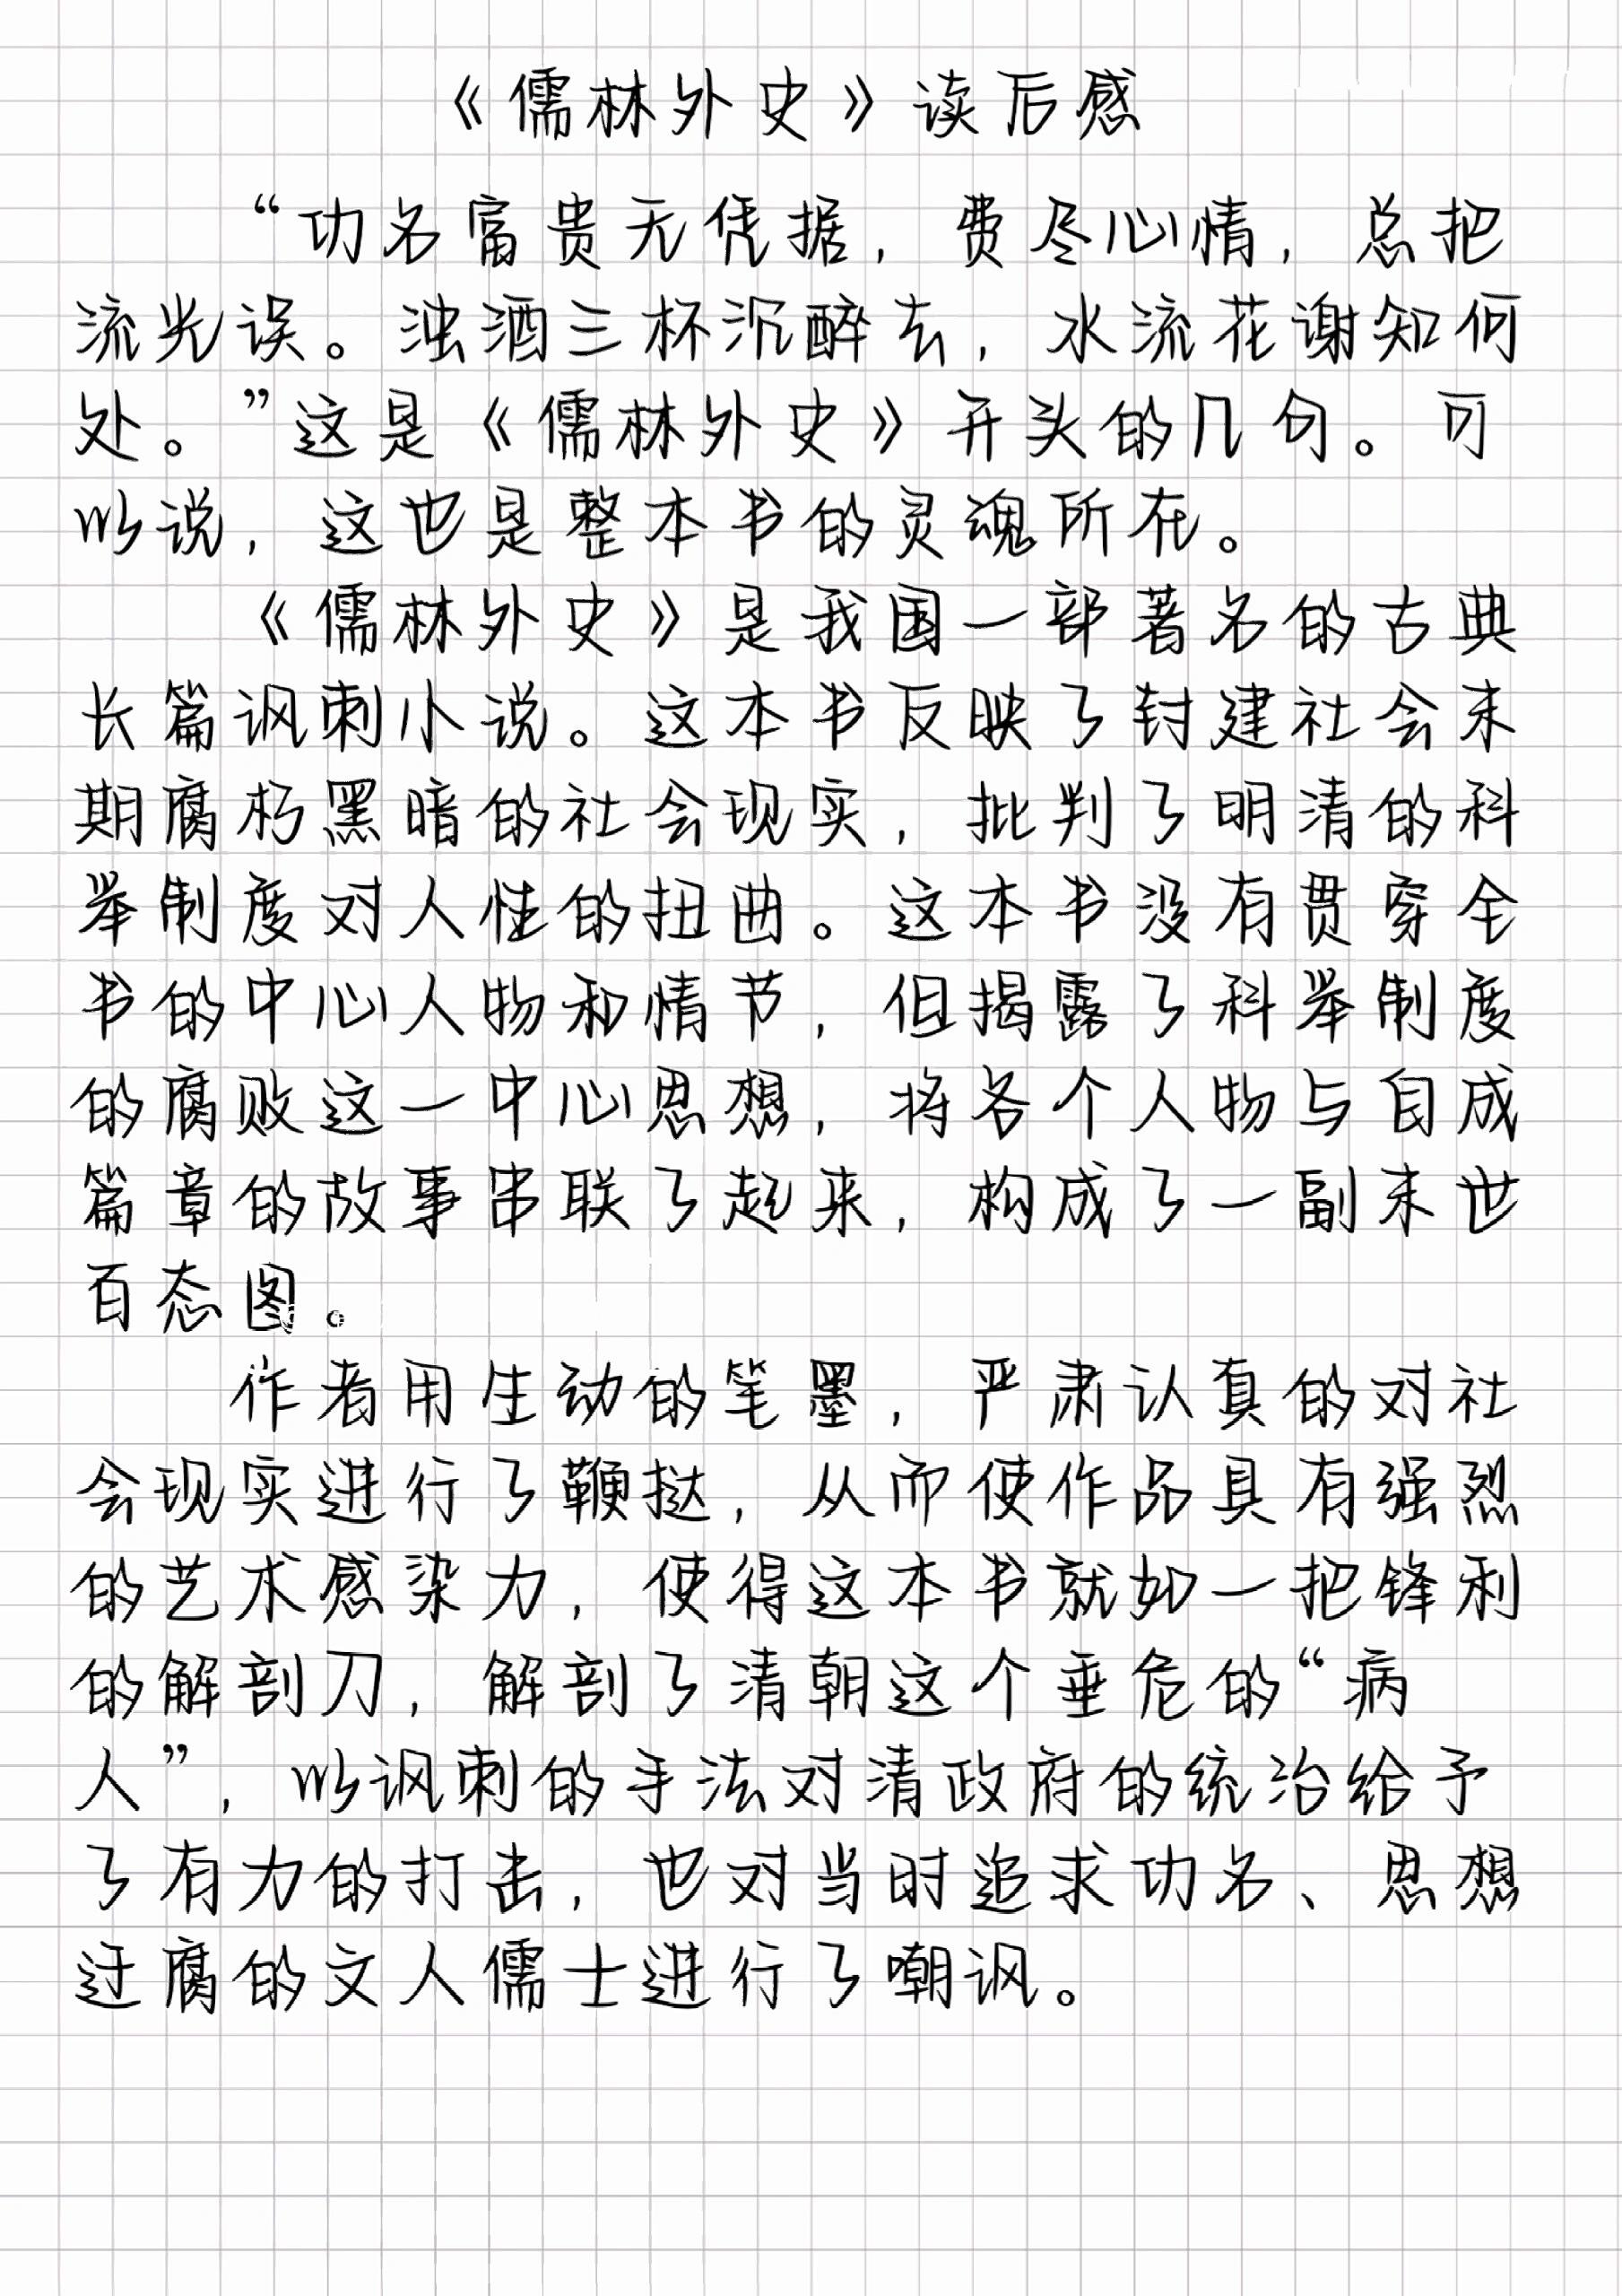 《儒林外史》读后感
“功名富贵无凭据，费尽心情，总把
流光误。浊酒三杯沉醉去，水流花谢知何
处。”这是《儒林外史》开头的几句。可
以说，这也是整本书的灵魂所在。
《儒林外史》是我国一部著名的古典
长篇讽刺小说。这本书反映了封建社会末
期腐朽黑暗的社会现实，批判了明清的科
举制度对人性的扭曲。这本书没有贯穿全
书的中心人物和情节，但揭露了科举制度
的腐败这一中心思想，将各个人物与自成
篇章的故事串联了起来，构成了一副末世
百态图。
作者用生动的笔墨，严肃认真的对社
会现实进行了鞭挞，从而使作品具有强烈
的艺术感染力，使得这本书就如一把锋利
的解剖刀，解剖了清朝这个垂危的“病
人”，以讽刺的手法对清政府的统治给予
了有力的打击，也对当时追求功名、思想
迂腐的文人儒士进行了嘲讽。